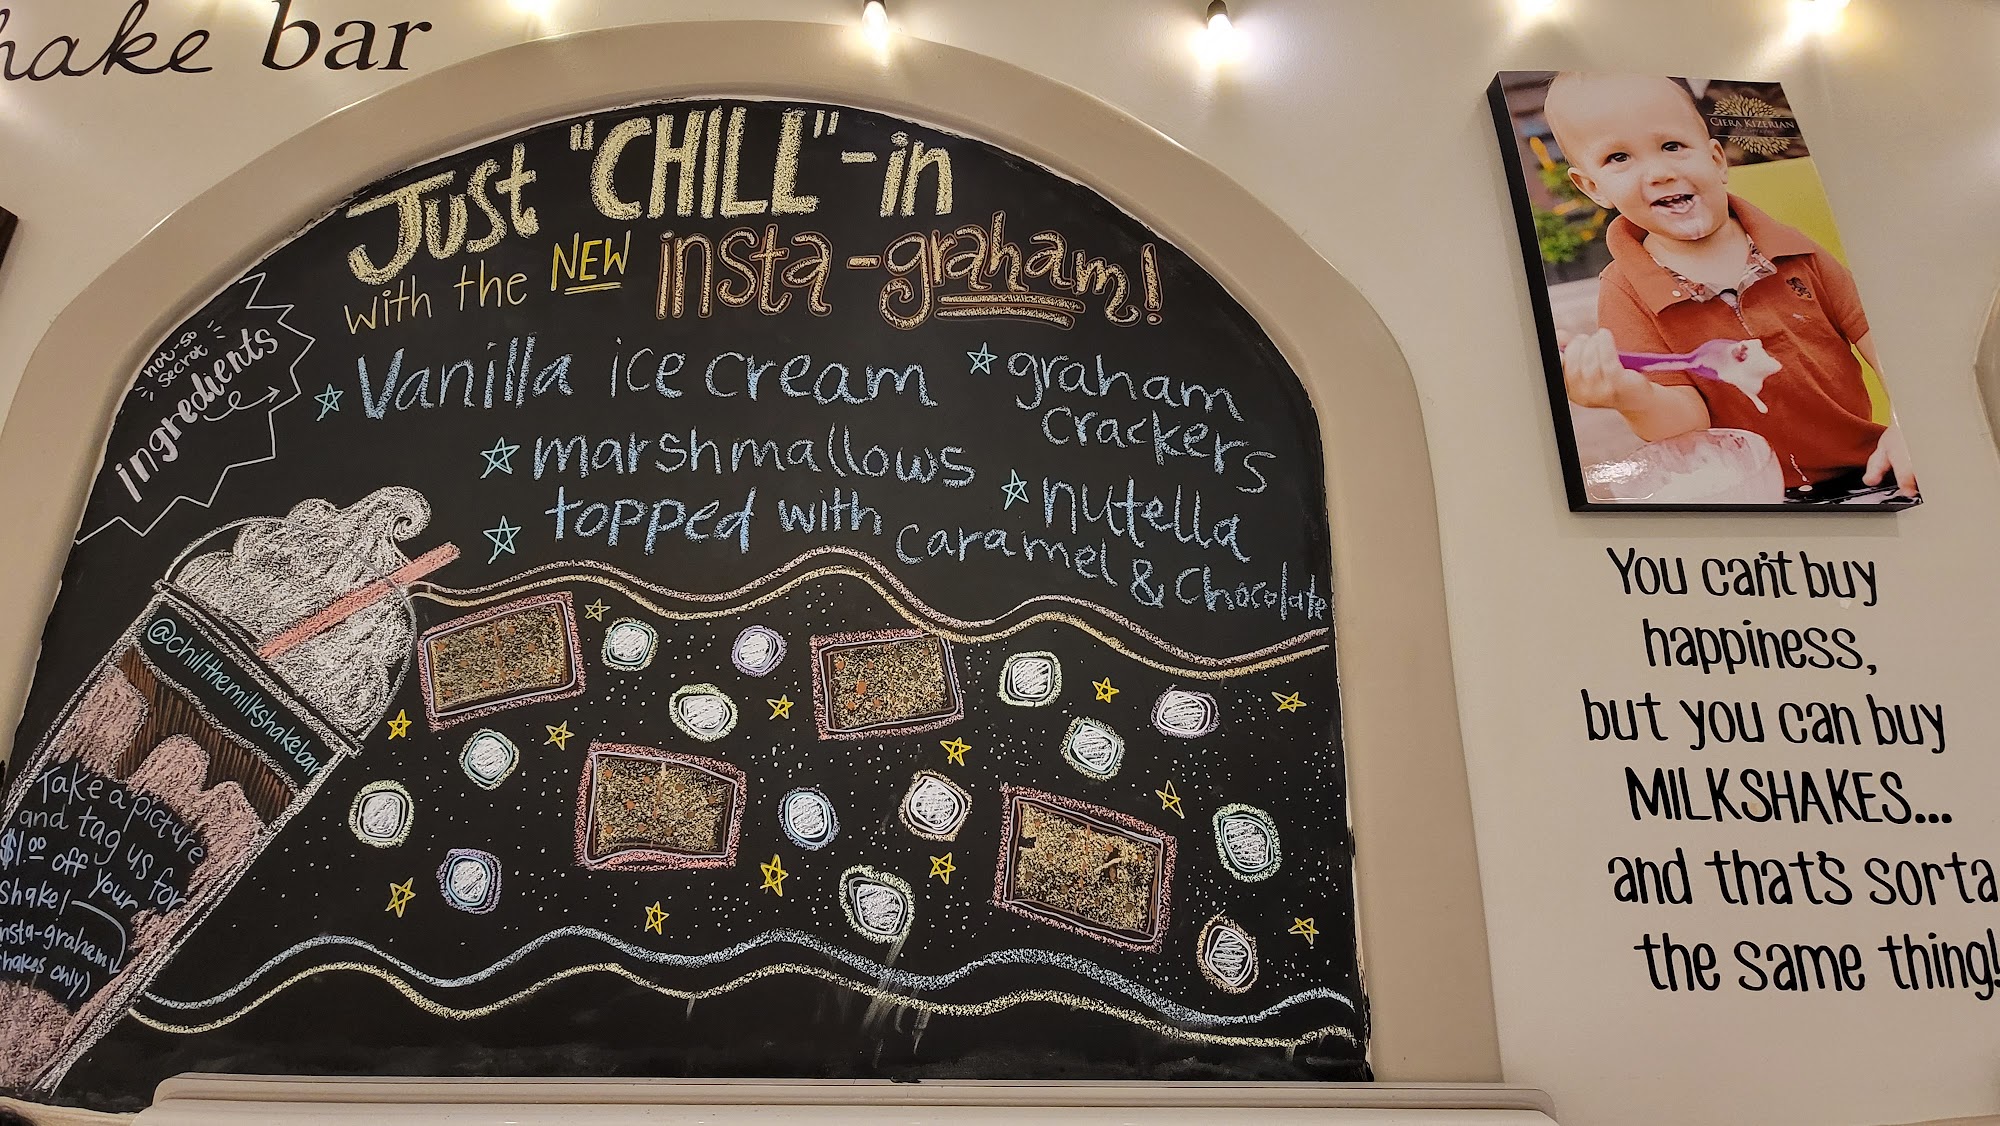 bar
Just "CHILL"-in
with the NEW insta-graham!
not-so
secret
ingredients
Vanilla ice cream
marshmallows
graham
crackers
nutella
topped with caramel & chocolate
@chillthemilkshakebar
Take a picture
and tag us for
$1.00 off your
shake!
insta-graham
shakes only)
CIERA KIZERIAN
You can't buy
happiness,
but you can buy
MILKSHAKES...
and that's sorta
the same thing!